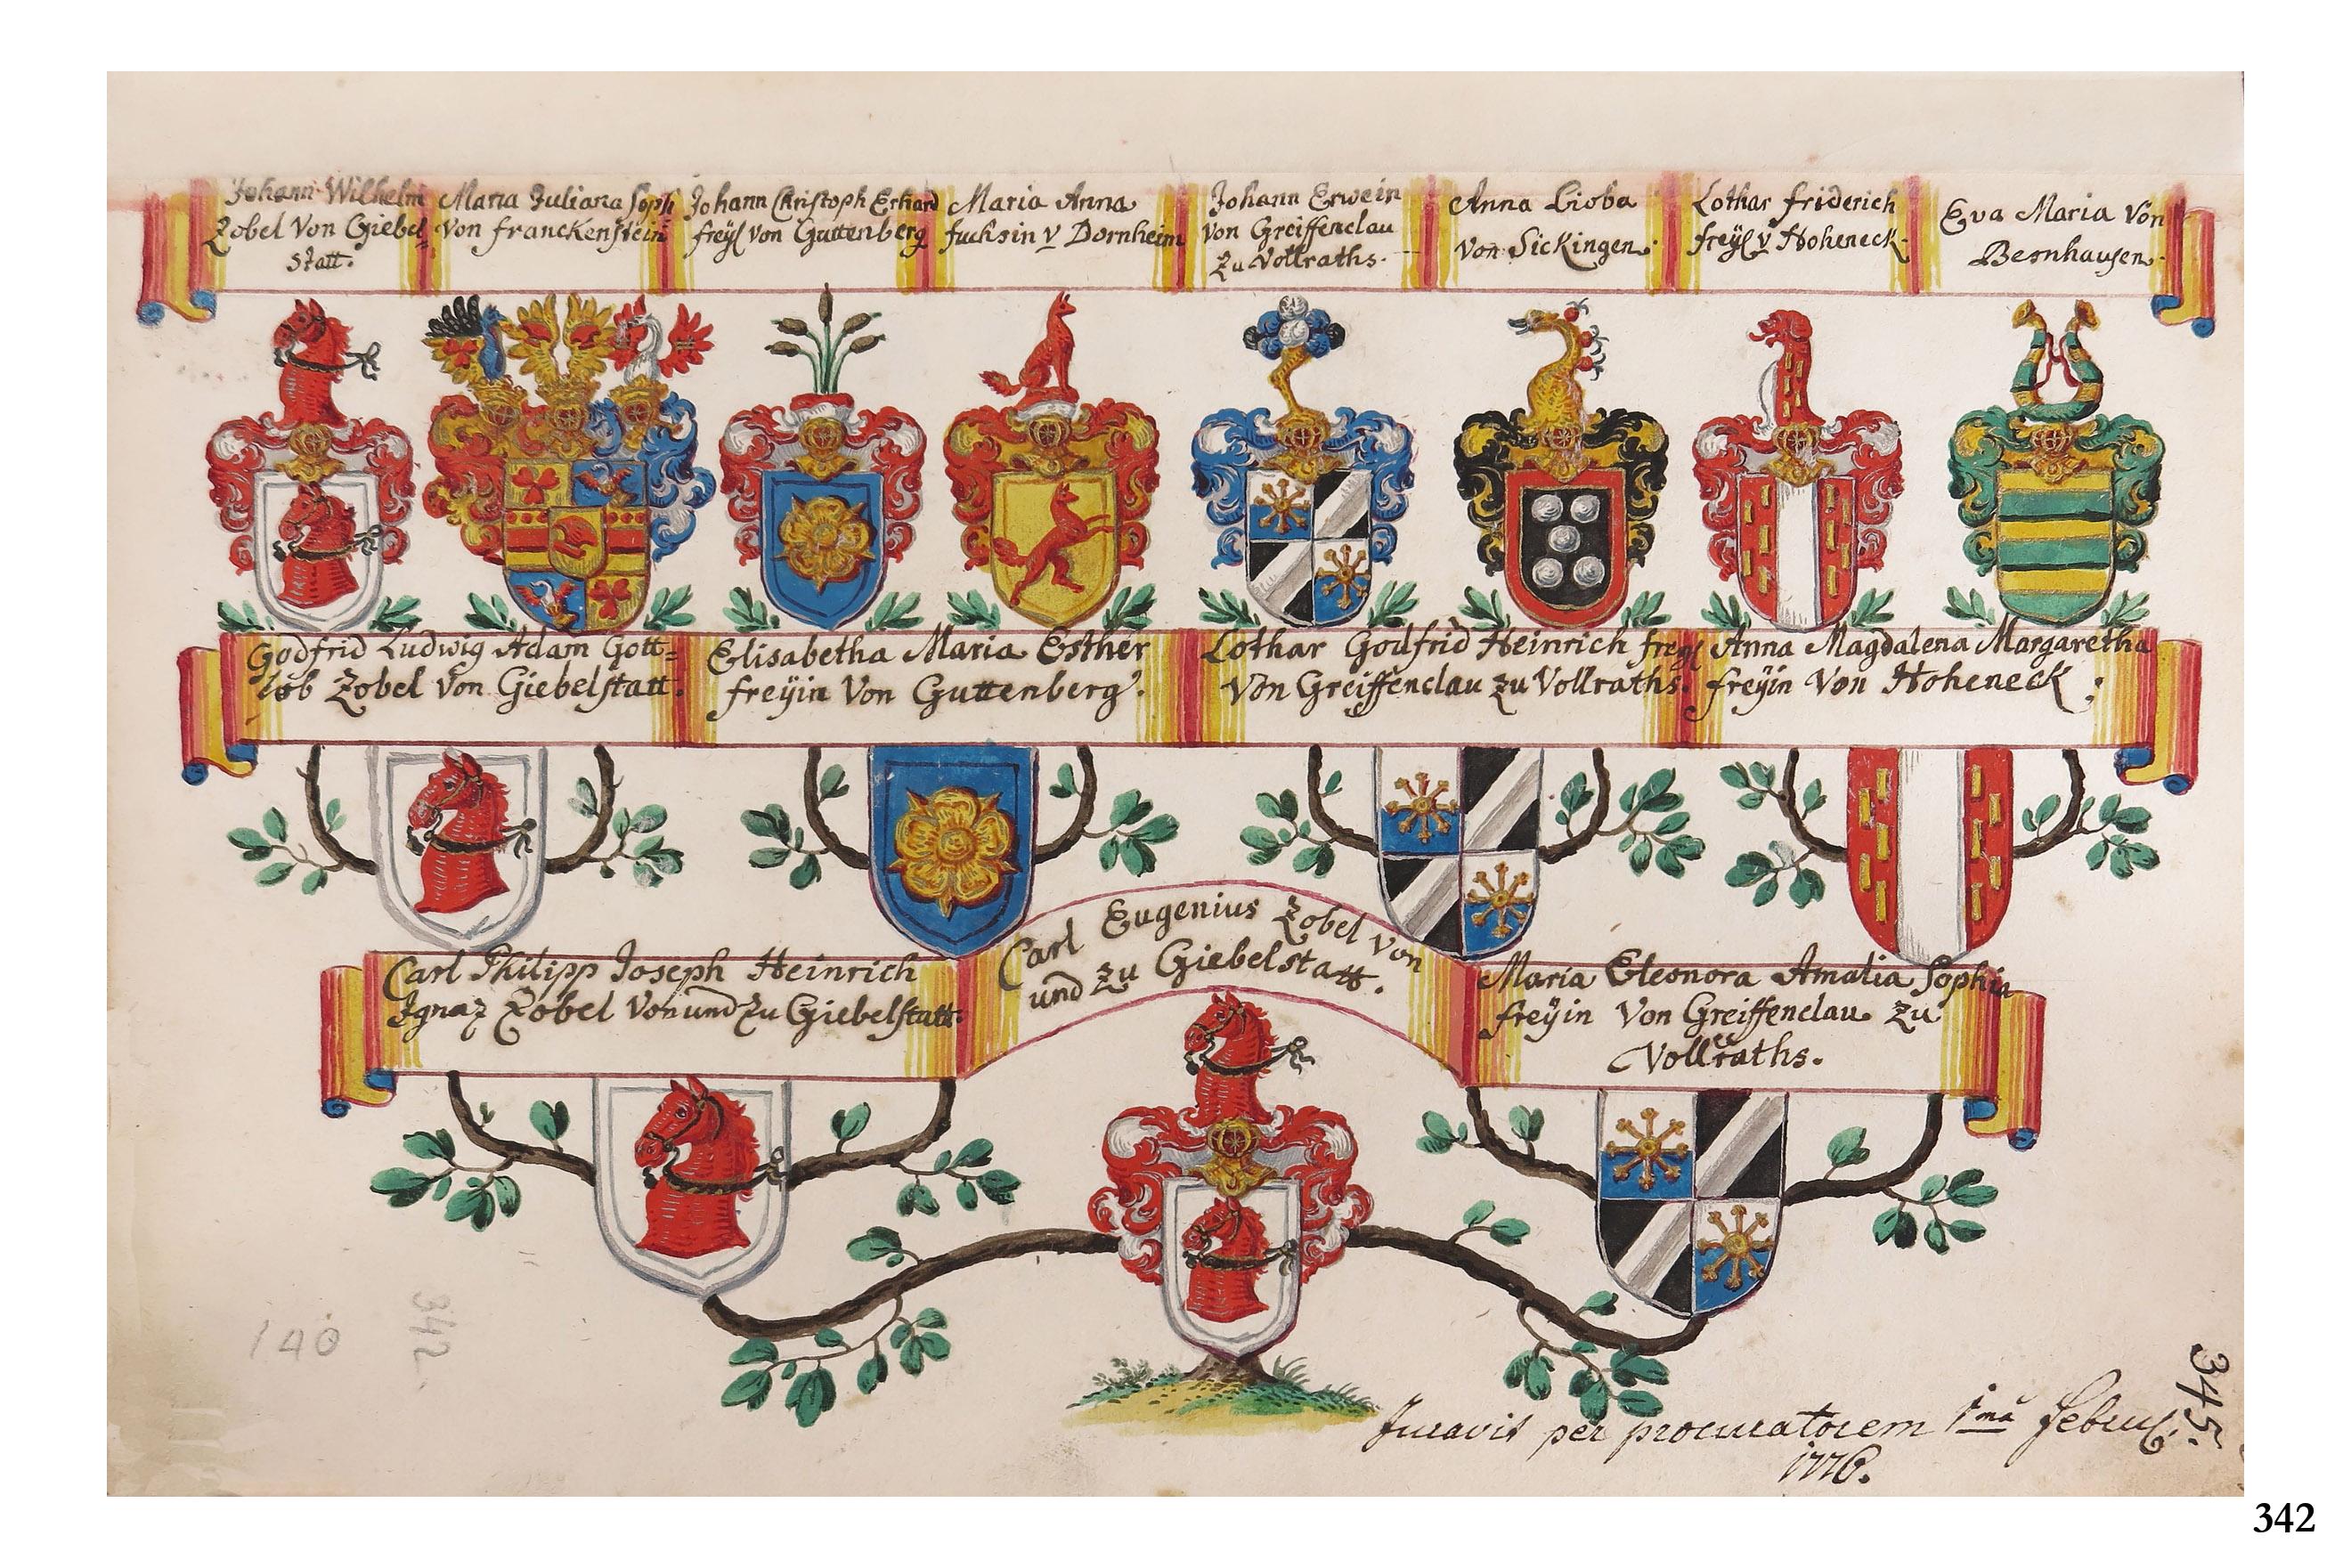 Johann Wilhelm
Zobel Von Giebel=
statt.
Maria Juliana Soph
Von franckenstein
Johann Christoph Erhard
freÿl von Guttenberg
Maria Anna
fuchsin v Dornheim
Johann Erwein
von Greiffenclau
zu Vollraths.
Anna Lioba
von Sickingen.
Lothar friderich
freÿl v Hoheneck.
Eva Maria von
Bernhausen.
Godfrid Ludwig Adam Gott=
lob Zobel von Giebelstatt.
Elisabetha Maria Esther
freÿin Von Guttenberg.
Lothar Godfrid Heinrich freÿl
Von Greiffenclau zu Vollraths.
Anna Magdalena Margaretha
freÿin Von Hoheneck.
Carl Philipp Joseph Heinrich
Ignaz Zobel Von und Zu Giebelstatt.
Carl Eugenius Zobel von
und zu Giebelstatt.
Maria Eleonora Amalia Sophia
freÿin Von Greiffenclau zu
Vollraths.
140
342
Juravit per procuratorem 1mâ Febru
1776.
345.
342